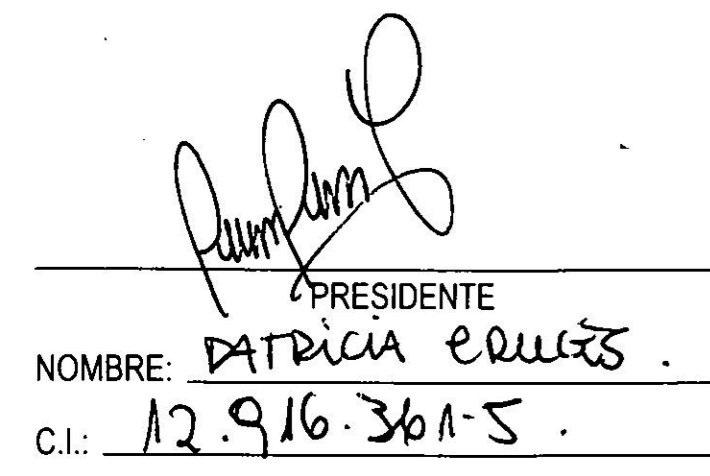 PRESIDENTE
NOMBRE: PATRICIA CRUCES.
C.I.: 12.916.361-5.